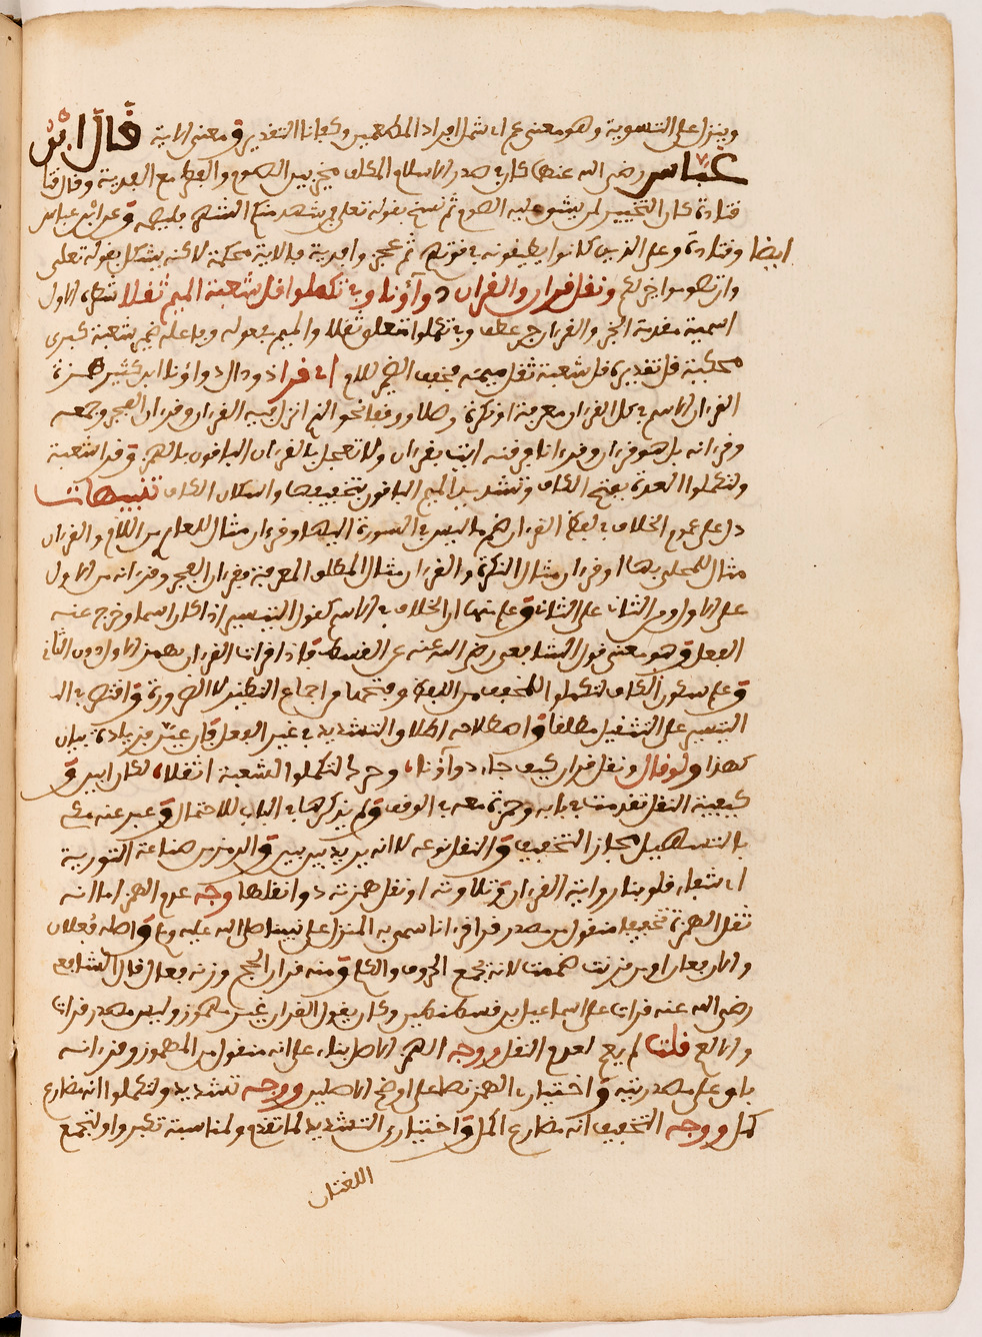 وينزل على التسوية وهو معنى عم ان شمل افراد المطعمين وكفانا التقدير ومعنى الاية قال ابن
عباس رضي الله عنهما كان في صدر الاسلام المكلف مخير بين الصوم والفطر مع الفدية وقال قتا
قتادة كان التخيير لمن يشق عليه الصوم ثم نسخ بقوله تعلى فمن شهد منكم الشهر فليصمه وعن ابن عباس
ايضا وقتادة وعلى الذين كانوا يطيقونه في قوتهم ثم عجزوا فدية فالاية محكمة لاكنه يشكل بقوله تعلى
وان تصوموا خير لكم ونقل قران والقران دواؤنا وفي تكملوا قل شعبة الميم ثقلا شطره الاول
اسمية مقدمة الخبر والقران جر عطف وفي تكملوا متعلق ثقلا والميم مفعوله وفاعله ضمير شعبة كبرى
محكية قل تقديره قل شعبة ثقل ميمه مخفف الضم للام اي قرا ذو دال دواؤنا ابن كثير همزة
القران الاسم في كل القران معرفة او نكرة وصلا ووقفا نحو الذي انزل فيه القران وقران الفجر وجمعه
وقرانه بل هو قران وقرانا فرقنه ايت بقران ولا تعجل بالقران الباقون بالهمز وقرا شعبة
ولتكملوا العدة بفتح الكاف وتشديد الميم الباقون بتخفيفها واسكان الكاف تنبيهات
دل على عموم الخلاف في لفظ القران ضم ما ليس في السورة اليها وقران مثال للعلم من اللام والقران
مثال للمحلى بها او قران مثال النكرة والقران مثال المطلق المعرفة وقران الفجر وقرانه من الاول
على الاول ومن الثاني على الثاني وعلم منهما ان الخلاف في الاسم كقول التيسير اذا كان اسما وخرج عنه
الفعل وهو معنى قول الشافعي رضي الله عنه عن القسط فاذا قرات القران يهمز الاول دون الثاني
وعلم سكون الكاف لتكملوا للمخفف من اللفظ وفتحها من اجماع النظير لا الضرورة واقتصر في الـ
التيسير على التثقيل مطلقا واصطلاحه اطلاق التشديد في غير الفعل فان عين فزيادة بيان
كهذا ولو قال ونقل قران كيف جاء دواؤنا وحرك لتكملوا لشعبة اثقلا لكان ابين و
كيفية النقل تقدمت في بابه وحمزة معه في الوقف ولم يذكرها في الباب للاختمال وعبر عنه مكي
بالتسهيل مجاز التخفيف والنقل نوعه لا انه يريد بين بين والرمز من صناعة التورية
اي شفاء قلوبنا رواية القران وتلاوته او نقل همزته دوا نقلها وجه عدم الهمز اما انه
نقل الهمزة تخفيفا منقول من مصدر قرا قرانا سمي به المنزل على نبينا صلى الله عليه وسلم واصله فعلان
والان فعان او من قرنت ضممت لانه يجمع الحروف والكلم ومنه قران الحج وزنه فعال قال الشافعي
رضي الله عنه قرات على اسماعيل بن قسطنطين وكان يقول القران غير مهموز وليس مصدر قرات
والا لع قلت لم يع لعدم النقل ووجه الهمز الاصل بناء على انه منقول من المهموز وقرانه
باق على مصدريته واختياري الهمز نصا على اوضح الاصلين ووجه تشديد ولتكملوا انه مضارع
كمل ووجه التخفيف انه مضارع اكمل واختياري التشديد لما تقدم ولمناسبة تكبروا ولتجمع
اللغتان